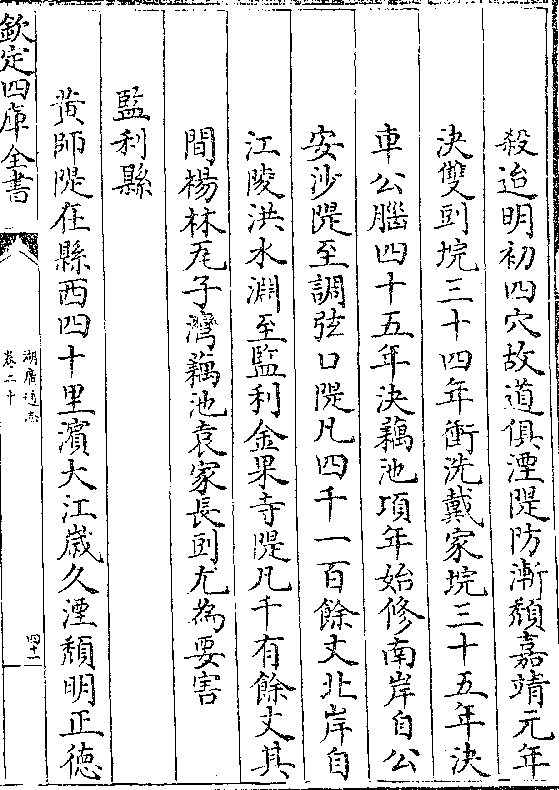 殺迨明初四穴故道俱湮隄防漸頽嘉靖元年
決雙剅垸三十四年衝洗戴家垸三十五年決
車公腦四十五年決藕池項年始修南岸自公
安沙隄至調弦口隄凡四千一百餘丈北岸自
江陵洪水淵至監利金果寺隄凡千有餘丈其
間楊林尾子灣藕池袁家長剅尤為要害
監利縣
黄師隄在縣西四十里濱大江歲久湮頽明正德
欽定四庫全書
湖廣通志
卷二十
四十一